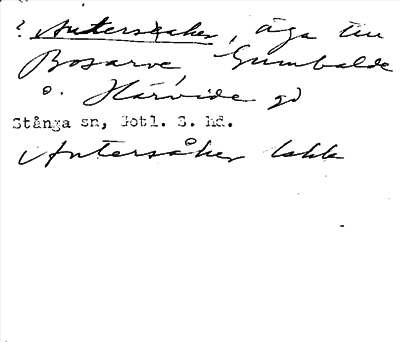 ? Antersaker, äga till
Bosarve, Gumbalde
o. Härvide gd
Stånga sn, Gotl. S. hd.
Antersåker